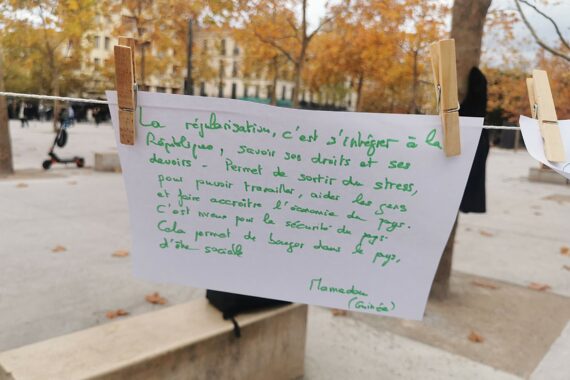 La régularisation, c'est s'intégrer à la
République, savoir ses droits et ses
devoirs. Permet de sortir du stress,
pour pouvoir travailler, aider les gens
et faire accroître l'économie du pays.
C'est mieux pour la sécurité du pays.
Cela permet de bouger dans le pays,
d'être sociable
Mamadou
(Guinée)